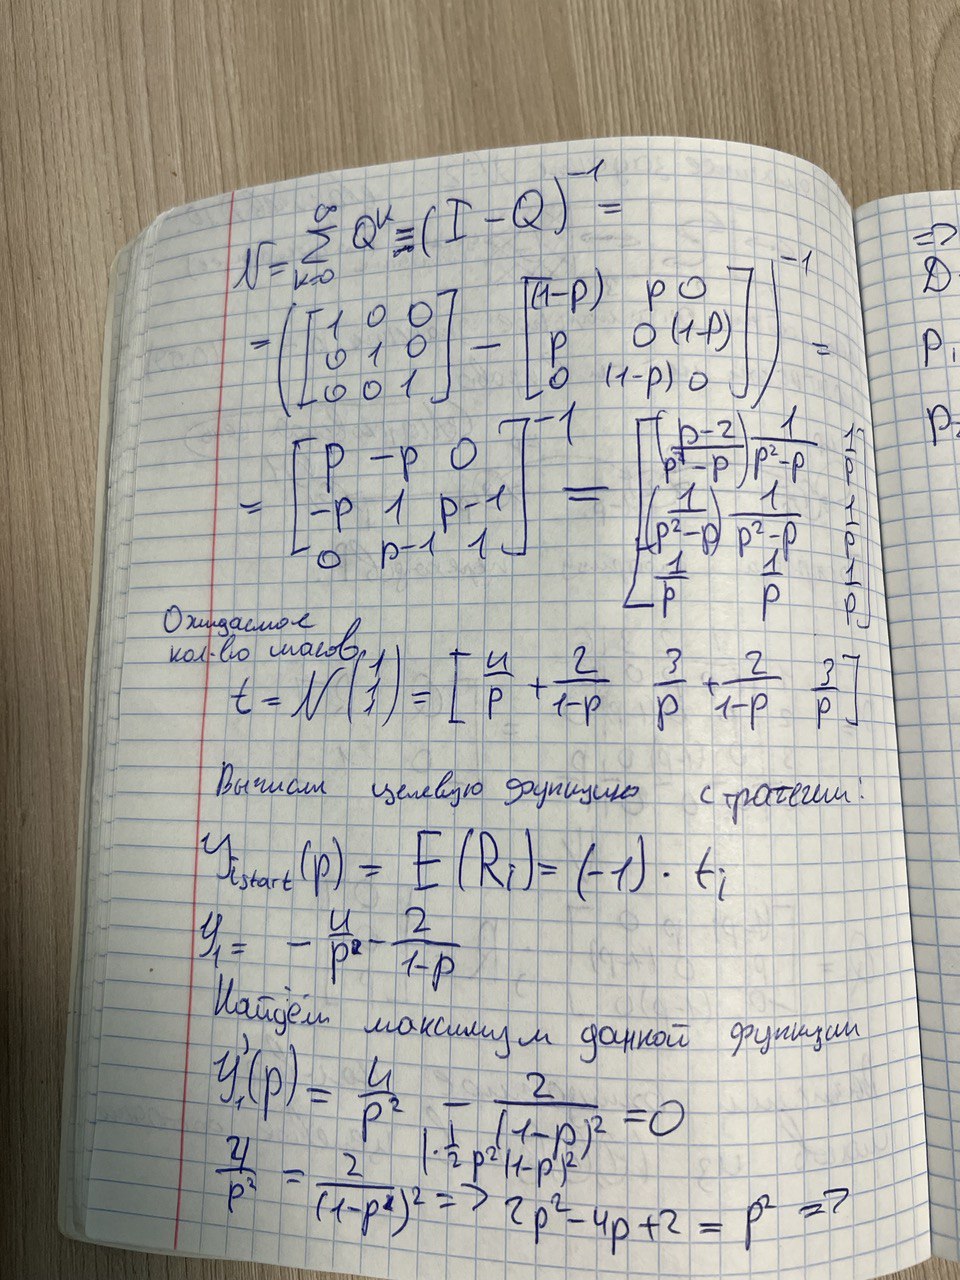 N = ∑_{k=0}^{∞} Q^k ≡ (I - Q)^{-1} =
= ([1 0 0; 0 1 0; 0 0 1] - [(1-p) p 0; p 0 (1-p); 0 (1-p) 0])^{-1} =
= [p -p 0; -p 1 p-1; 0 p-1 1]^{-1} = [((p-2)/(p²-p)) 1/(p²-p) 1/p; (1/(p²-p)) 1/(p²-p) 1/p; 1/p 1/p 1/p]
Ожидаемое
кол-во шагов
t = N (1 1 1) = [4/p + 2/(1-p) 3/p + 2/(1-p) 3/p]
Вычислим целевую функцию стратегии:
y_{i start}(p) = E(R_i) = (-1) · t_i
y_1 = - 4/p - 2/(1-p)
Найдём максимум данной функции
y_1'(p) = 4/p² - 2/(1-p)² = 0
4/p² = 2/(1-p)² | · 1/2 p²(1-p)² => 2p² - 4p + 2 = p² =>
=>
D
p_1
p_2